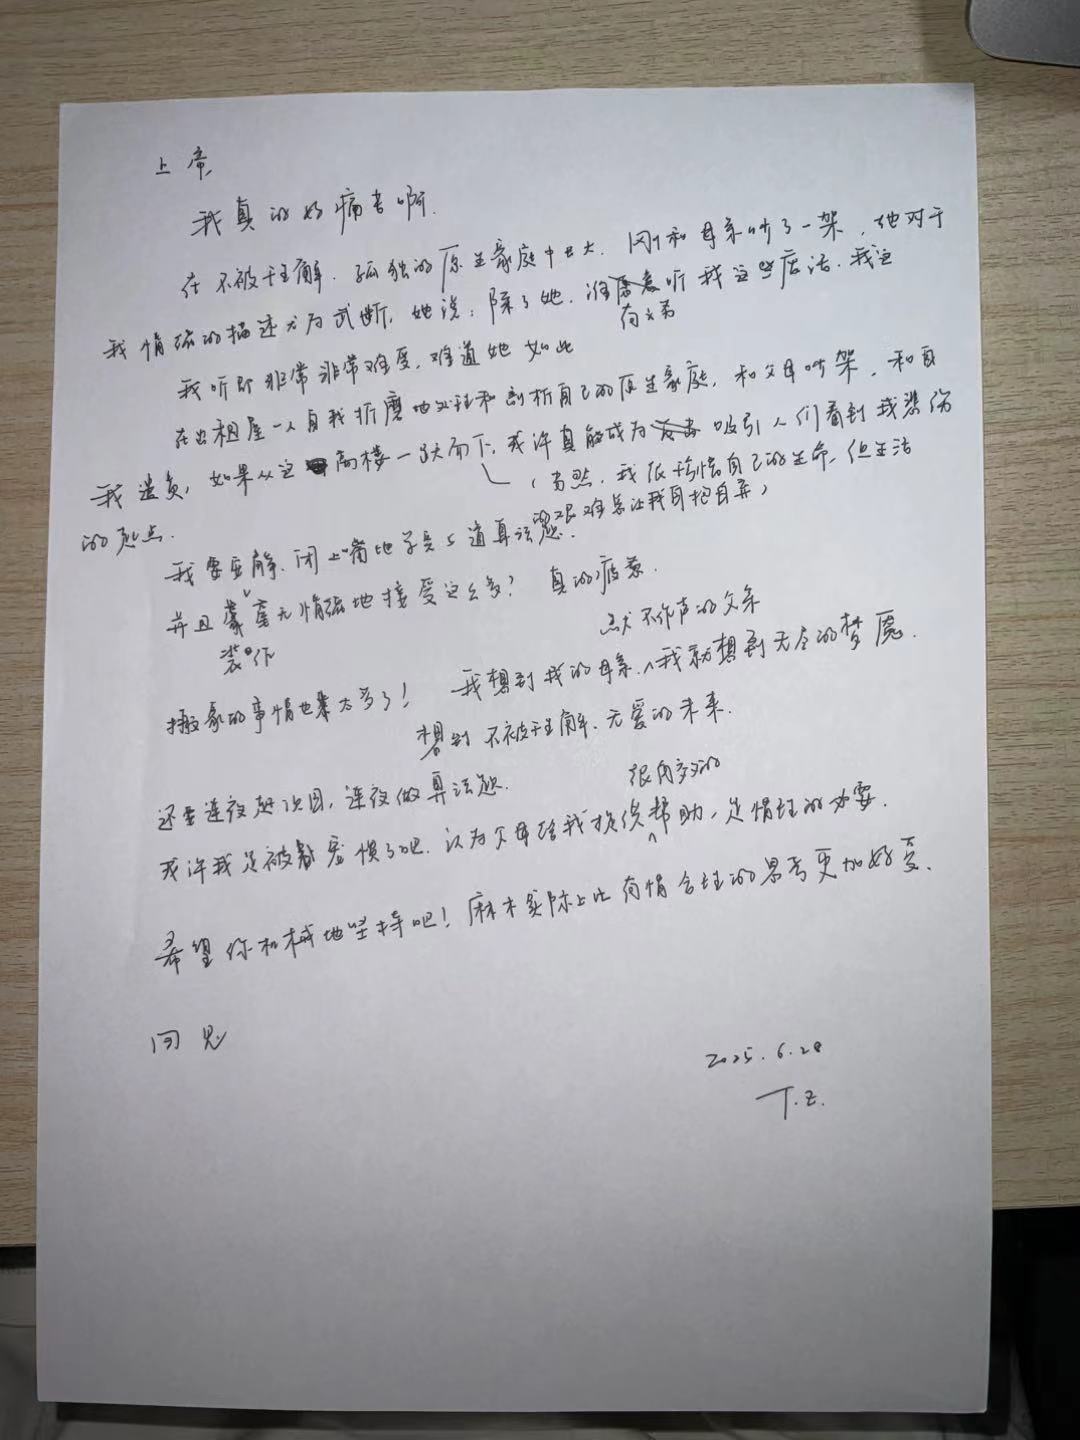 上帝,
我真的好痛苦啊.
在不被理解、孤独的原生家庭中长大. 刚和母亲吵了一架, 她对于
我情绪的描述尤为武断, 她说: 除了她, 谁愿意听我这些废话. 我这
有义务
我听即非常非常难受, 难道她如此
在出租屋一人自我折磨地处理和剖析自己的原生家庭, 和父母吵架, 和自
我遣责, 如果从这高楼一跃而下, 或许真能成为 吸引人们看到我悲伤
(当然, 我很珍惜自己的生命, 但生活
的起点.
的艰难总让我自抱自弃)
我要安静、闭上嘴地学完5道算法题.
并且毫无情绪地接受这么多? 真的疲惫.
装作
默不作声的父亲
搬家的事情也太多了! 我想到我的母亲、我就想到无尽的梦魇.
想到不被理解、无爱的未来.
还要连夜赶项目, 连夜做算法题.
很肉麻的
或许我是被宠惯了吧. 认为父母给我提供帮助, 是情理的必要.
希望你机械地坚持吧! 麻木实际上比有情合理的思考更加好受.
回见
2025.6.28
T.Z.